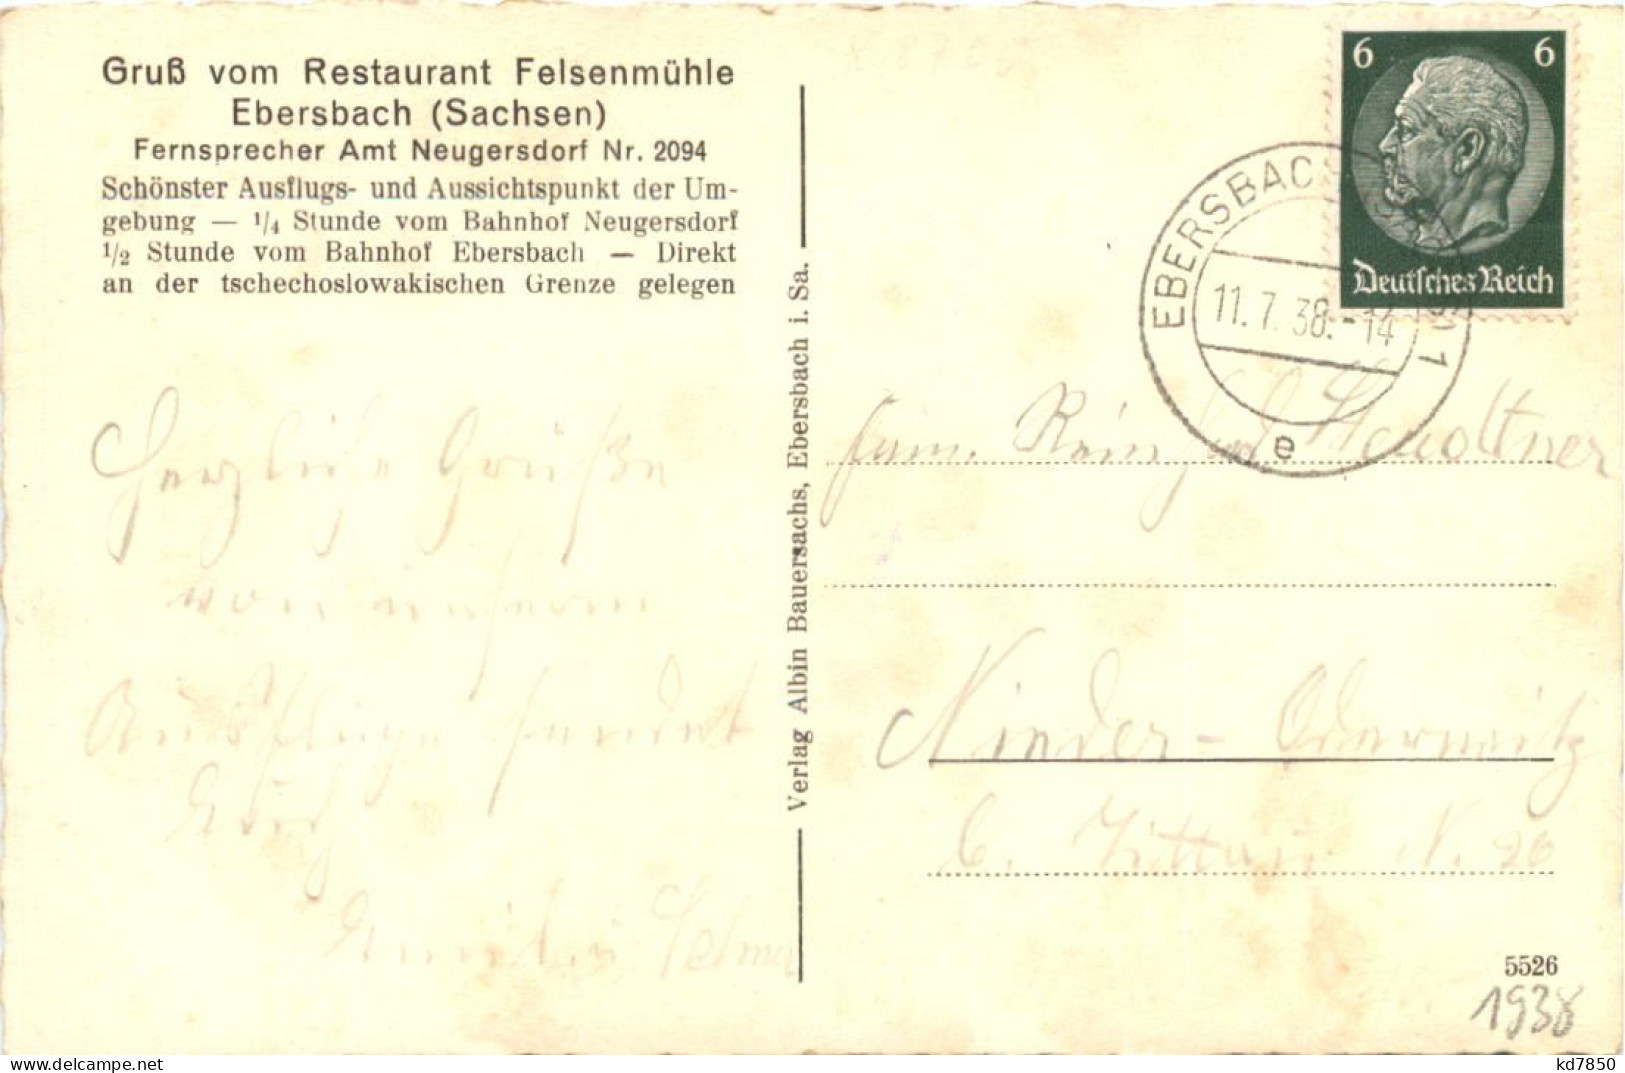 Gruß vom Restaurant Felsenmühle
Ebersbach (Sachsen)
Fernsprecher Amt Neugersdorf Nr. 2094
Schönster Ausflugs- und Aussichtspunkt der Um-
gebung — 1/4 Stunde vom Bahnhof Neugersdorf
1/2 Stunde vom Bahnhof Ebersbach — Direkt
an der tschechoslowakischen Grenze gelegen
Herzliche Grüße
von unserm
Ausfluge sendet
Euch
Selma
Verlag Albin Bauersachs, Ebersbach i. Sa.
6 6
Deutsches Reich
EBERSBACH
1
11.7.38.-14
e
Fam.
Nieder-Oderwitz
b. Zittau N. 26
5526
1938
kd7850